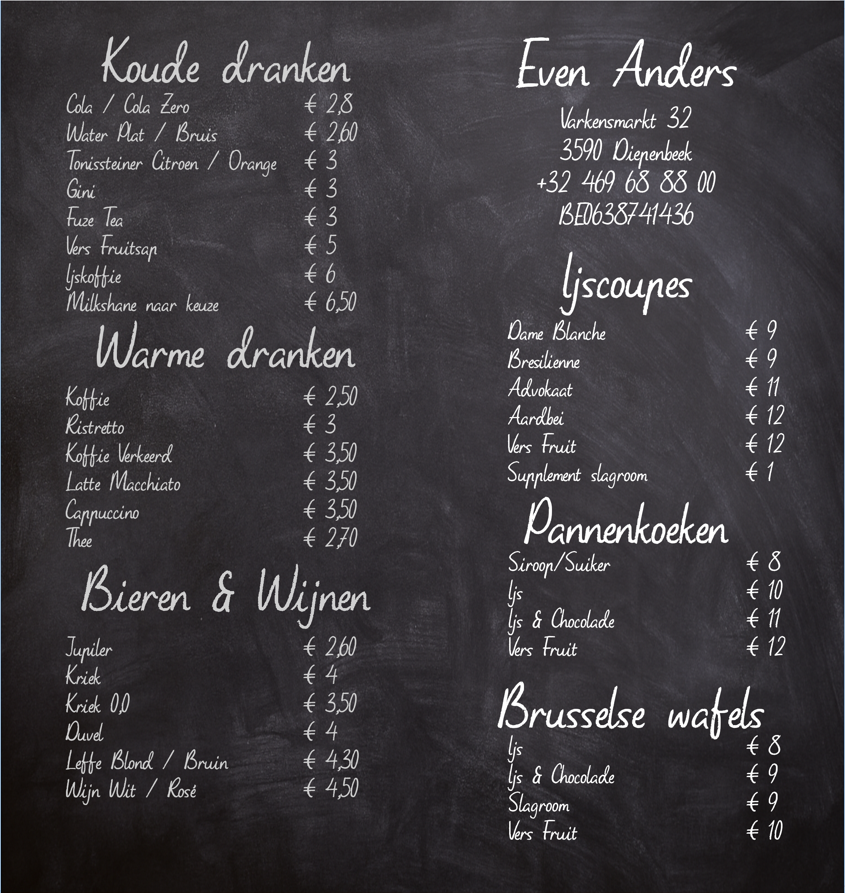 Koude dranken
Cola / Cola Zero € 2,8
Water Plat / Bruis € 2,60
Tonissteiner Citroen / Orange € 3
Gini € 3
Fuze Tea € 3
Vers Fruitsap € 5
Ijskoffie € 6
Milkshane naar keuze € 6,50
Warme dranken
Koffie € 2,50
Ristretto € 3
Koffie Verkeerd € 3,50
Latte Macchiato € 3,50
Cappuccino € 3,50
Thee € 2,70
Bieren & Wijnen
Jupiler € 2,60
Kriek € 4
Kriek 0,0 € 3,50
Duvel € 4
Leffe Blond / Bruin € 4,30
Wijn Wit / Rosé € 4,50
Even Anders
Varkensmarkt 32
3590 Diepenbeek
+32 469 68 88 00
BE0638741436
Ijscoupes
Dame Blanche € 9
Bresilienne € 9
Advokaat € 11
Aardbei € 12
Vers Fruit € 12
Supplement slagroom € 1
Pannenkoeken
Siroop/Suiker € 8
Ijs € 10
Ijs & Chocolade € 11
Vers Fruit € 12
Brusselse wafels
Ijs € 8
Ijs & Chocolade € 9
Slagroom € 9
Vers Fruit € 10